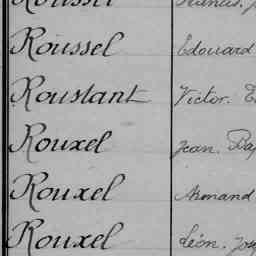 Roussel
Roussel Edouard
Roustant Victor.
Rouxel Jean.
Rouxel Armand
Rouxel Léon.